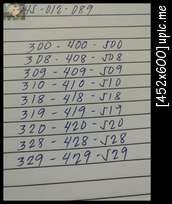 45-012-089
300-400-500
308-408-508
309-409-509
310-410-510
318-418-518
319-419-519
320-420-520
328-428-528
329-429-529
[452x600] upic.me